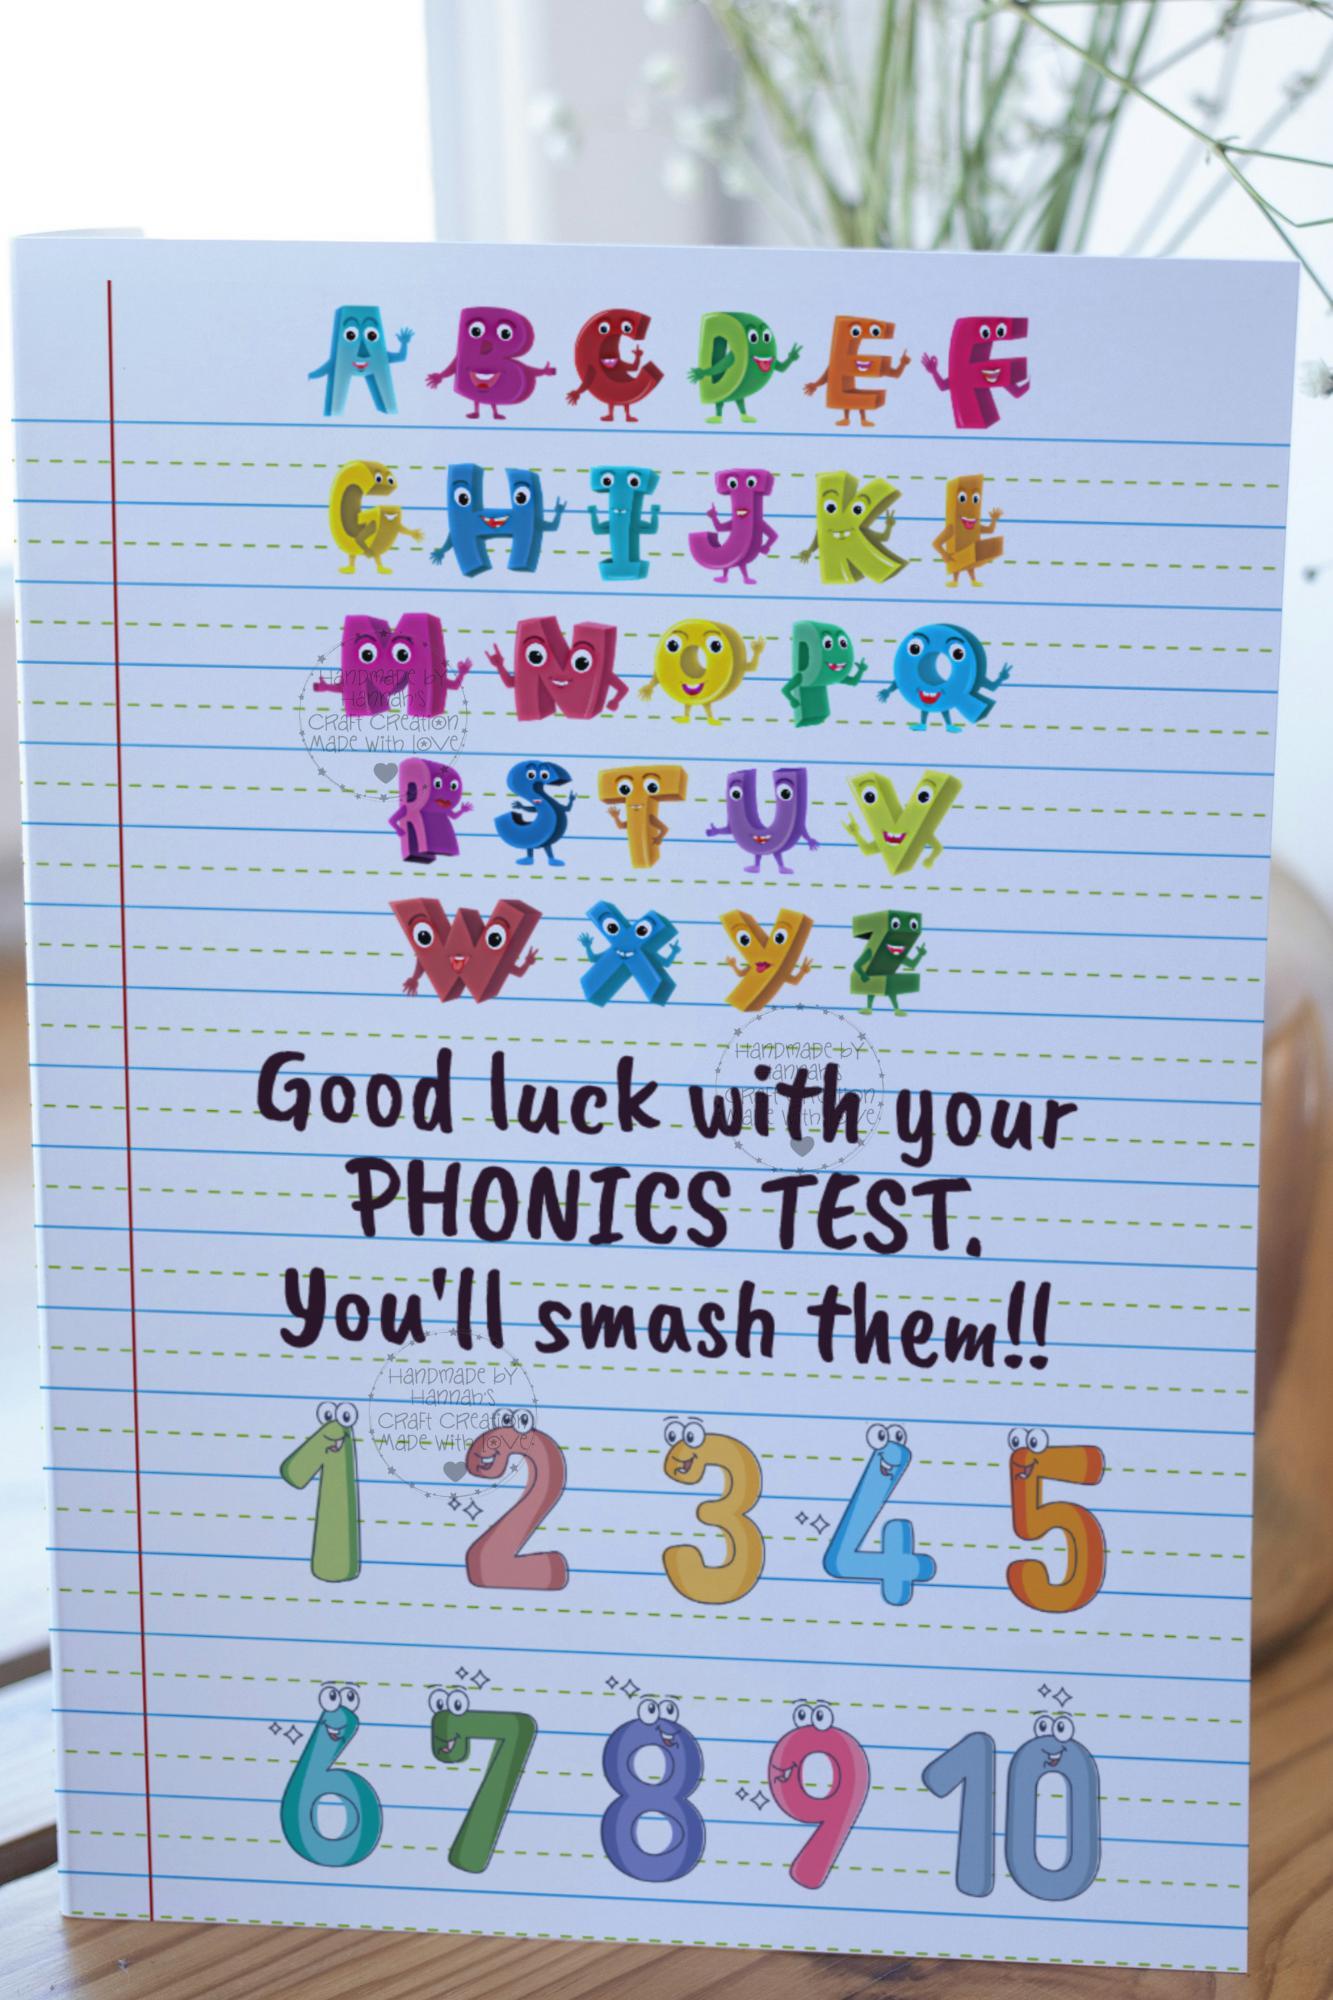 A B C D E F
G H I J K L
M N O P Q
Handmade by
Hannah's
Craft Creation
Made with love
R S T U V
W X Y Z
Good luck with your
Handmade by
Hannah's
Craft Creation
Made with love
PHONICS TEST.
You'll smash them!!
Handmade by
Hannah's
Craft Creation
Made with love
1 2 3 4 5
6 7 8 9 10